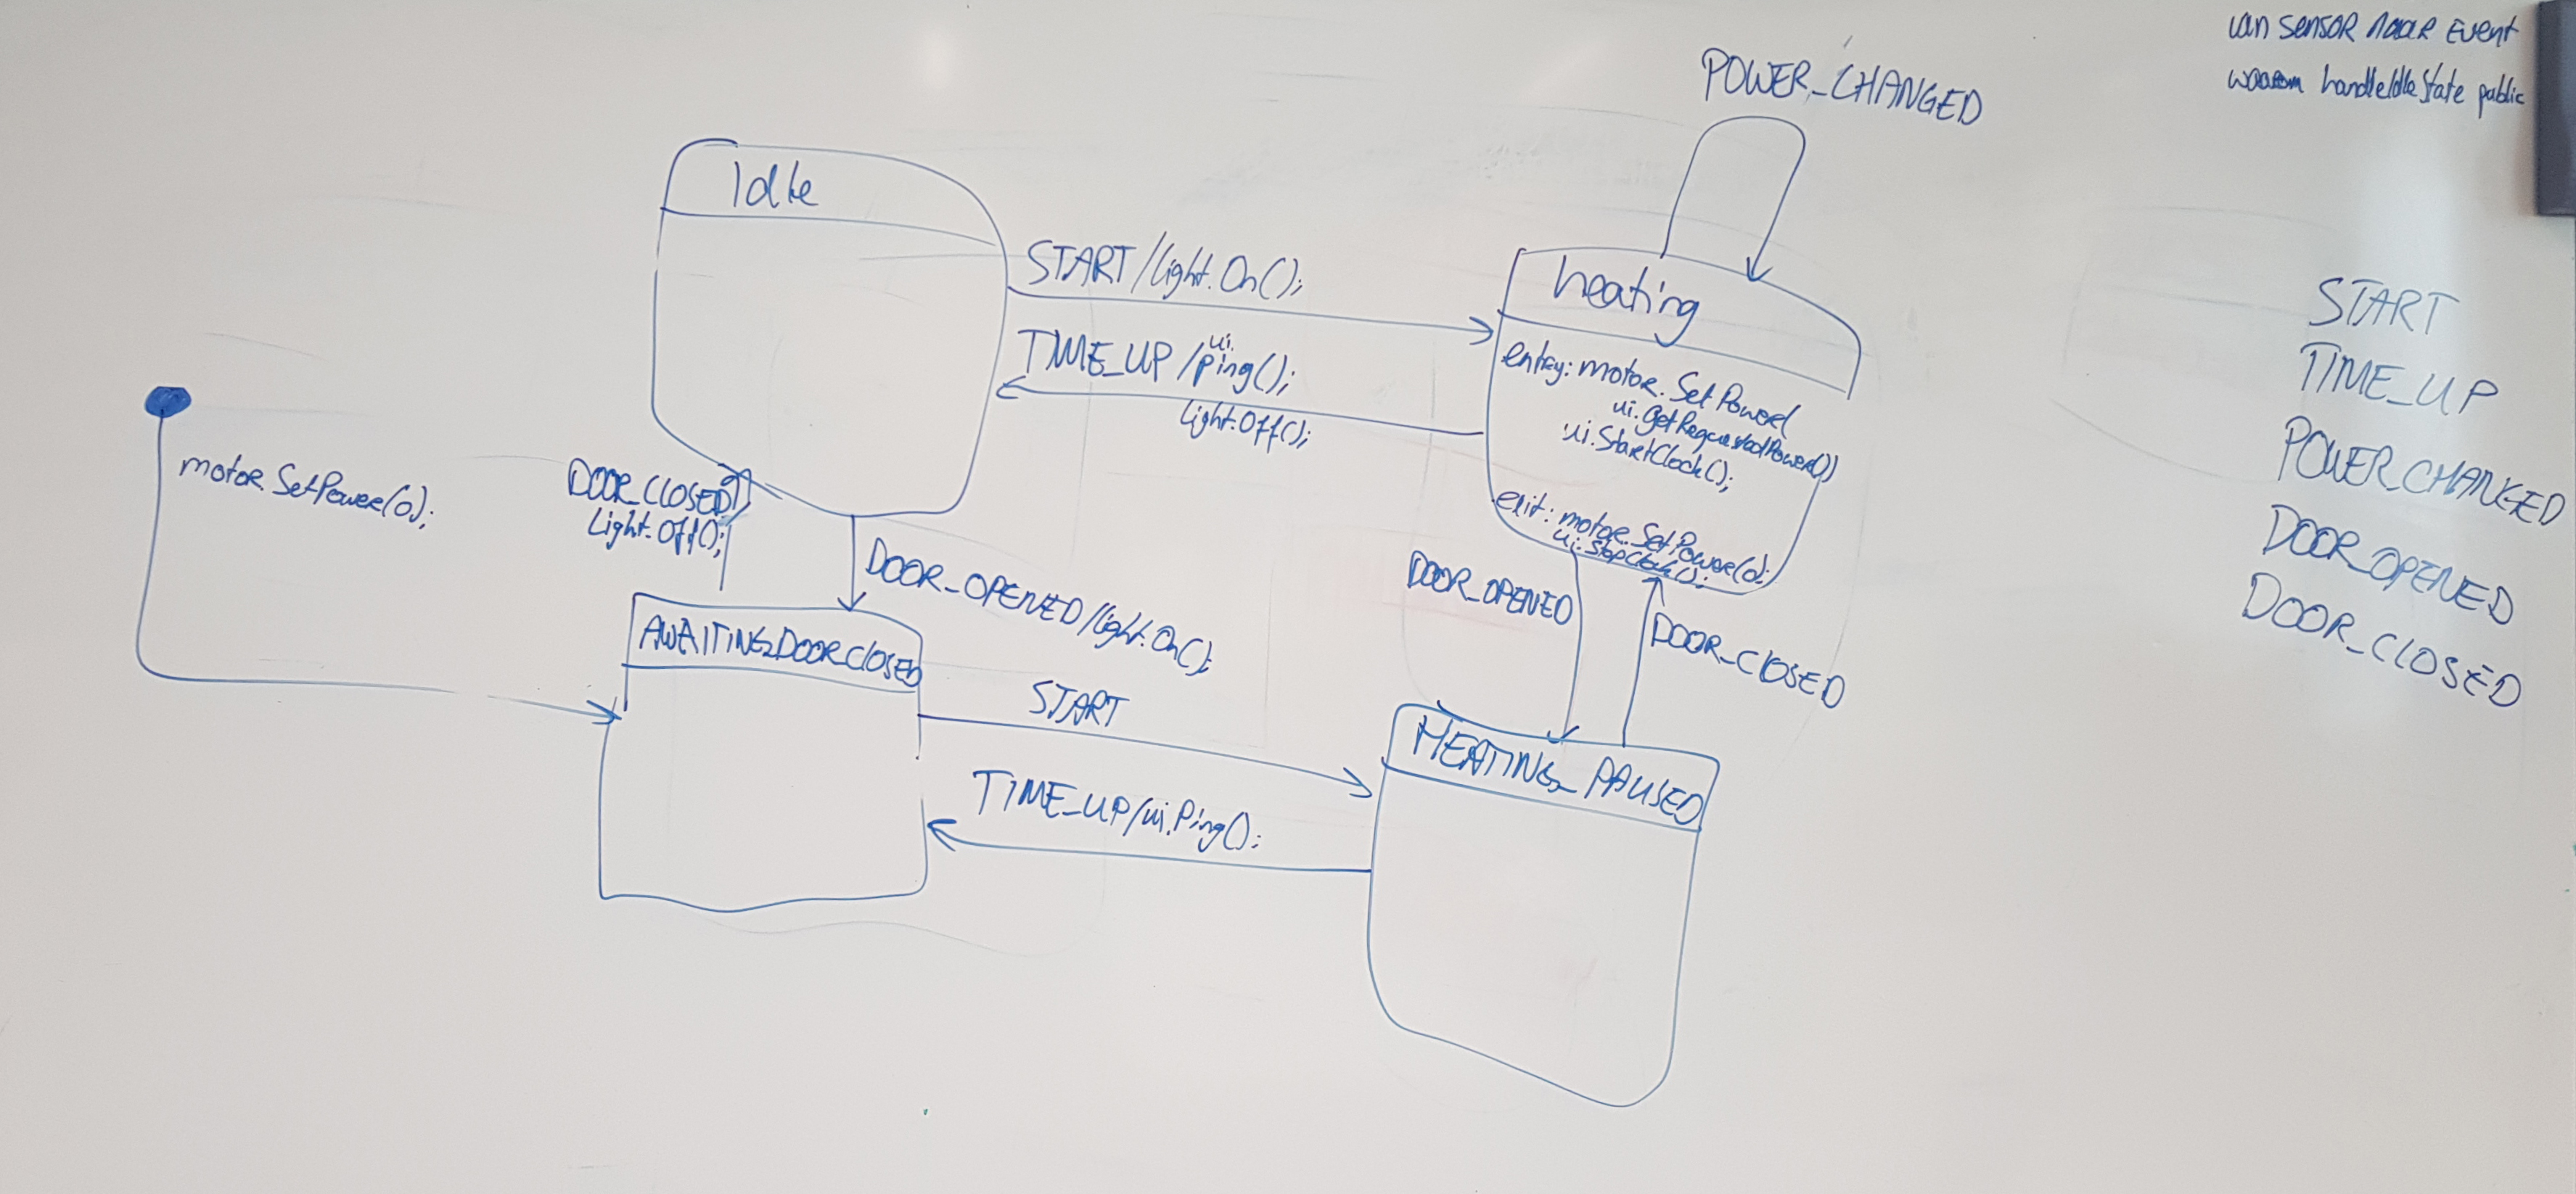 van sensor naar Event
waarom handleIdleState public
POWER_CHANGED
Idle
START/light.On();
heating
TIME_UP/ui.ping();
light.Off();
entry: motor.SetPower(
ui.getRequestedPower())
ui.StartClock();
exit: motor.SetPower(0);
ui.stopClock();
motor.SetPower(0);
DOOR_CLOSED/
Light.Off();
DOOR_OPENED/light.On();
DOOR_OPENED
DOOR_CLOSED
AWAITINGDOORCLOSED
START
TIME_UP/ui.Ping();
HEATING_PAUSED
START
TIME_UP
POWER_CHANGED
DOOR_OPENED
DOOR_CLOSED